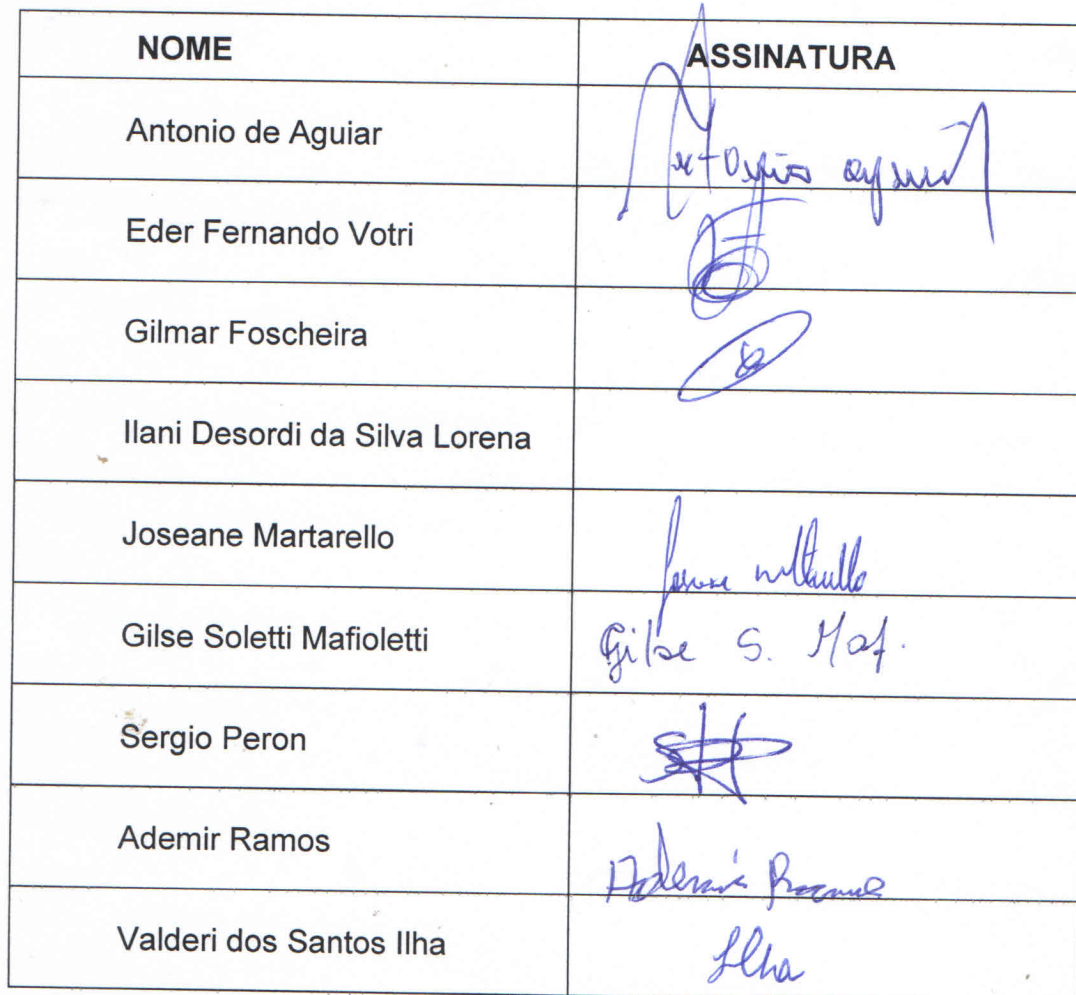 NOME ASSINATURA
Antonio de Aguiar
Eder Fernando Votri
Gilmar Foscheira
Ilani Desordi da Silva Lorena
Joseane Martarello
Gilse Soletti Mafioletti Gilse S. Maf.
Sergio Peron
Ademir Ramos
Valderi dos Santos Ilha Ilha